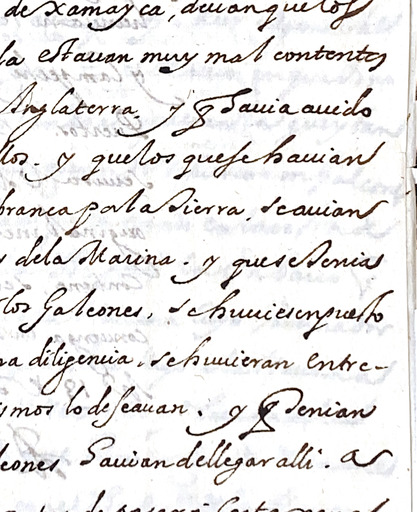 de Xamayca, decian que los
la estavan muy mal contentos
Ynglaterra. y q̃ havia avido
llos. y que los que se havian
branca por la sierra, se avian
s de la Marina. y que se tenia
los Galeones, se huviesen puesto
na diligencia, se huvieran entre-
ismos lo deseavan. y q̃ tenian
leones havian de llegar alli. as